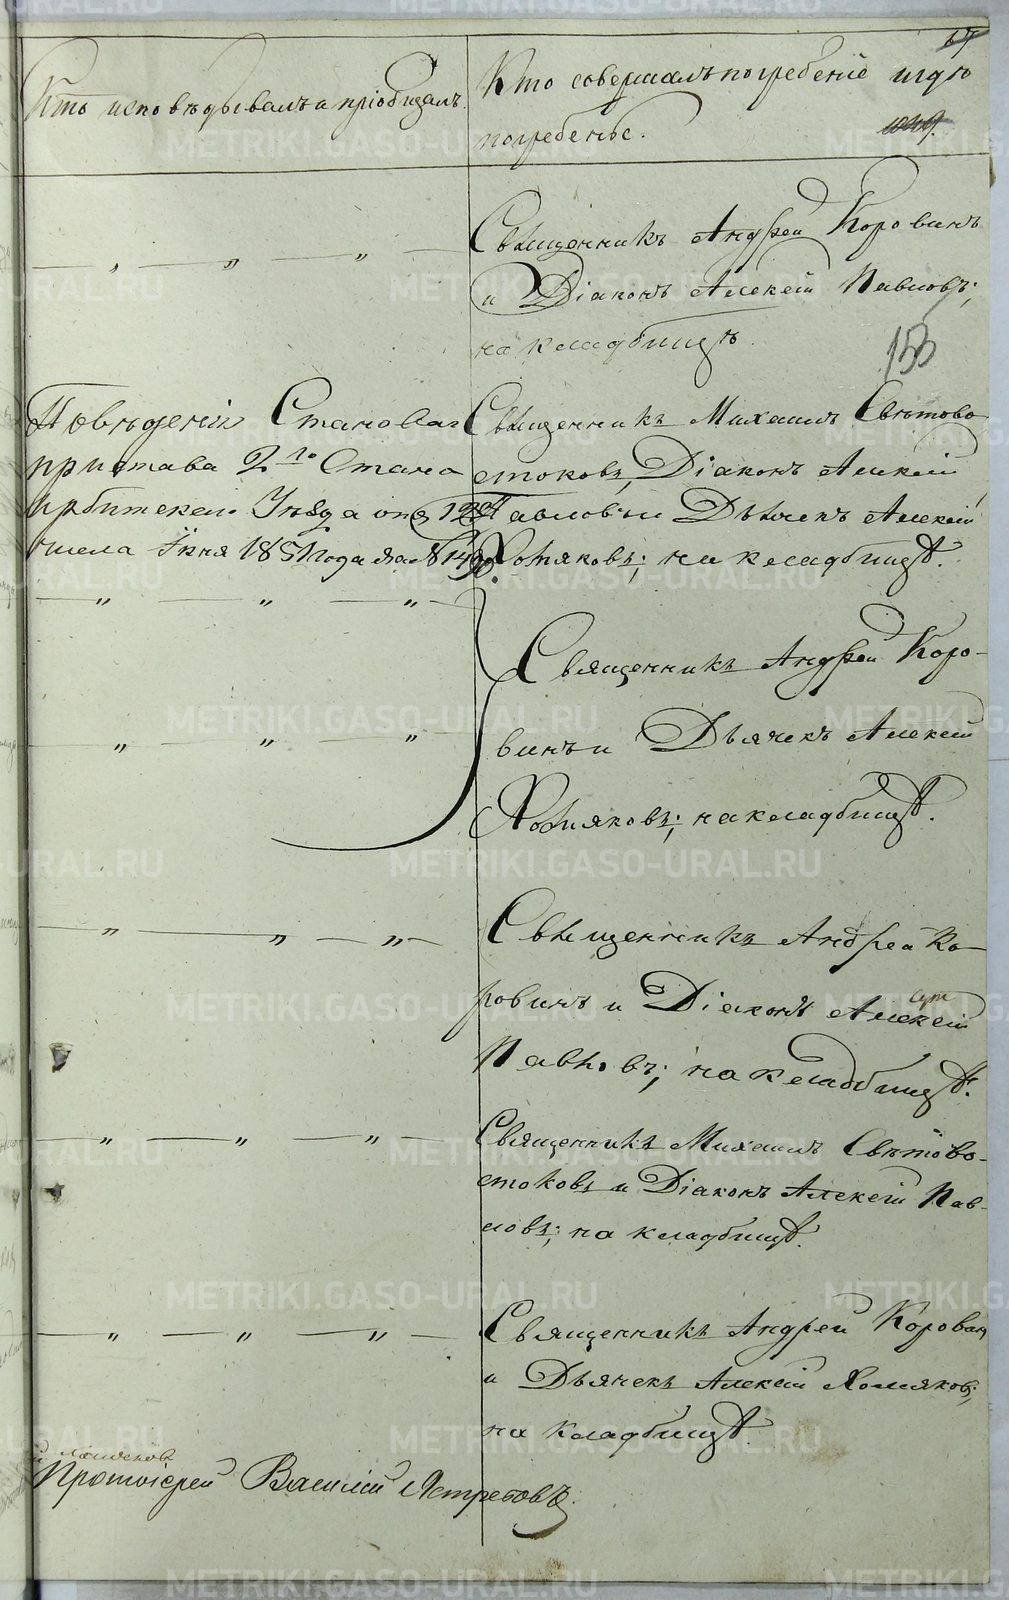 67
Кто исповѣдывалъ и пріобщалъ.
Кто совершалъ погребеніе и гдѣ
погребенъ.
Священникъ Андрей Коровинъ
и Діаконъ Алексій Павловъ;
на кладбищѣ.
153
По вѣденію Становаго
пристава 2го Стана
Ирбитскаго Уѣзда отъ 12го
числа Іюня 1851 года за №
Священникъ Михаилъ Свѣтово
стоковъ, Діаконъ Алексій
Павловъ и Дьячекъ Алексій
Хомяковъ; на кладбищѣ.
Священникъ Андрей Коро-
винъ и Дьячекъ Алексій
Хомяковъ; на кладбищѣ.
Священникъ Андрей Ко-
ровинъ и Діаконъ Алексій
Павловъ; на кладбищѣ.
Священникъ Михаилъ Свѣтово-
стоковъ и Діаконъ Алексій Пав-
ловъ; на кладбищѣ.
Священникъ Андрей Коровинъ
и Дьячекъ Алексій Хомяковъ;
на кладбищѣ.
Протоіерей Василій Ястребовъ.
METRIKI.GASO-URAL.RU